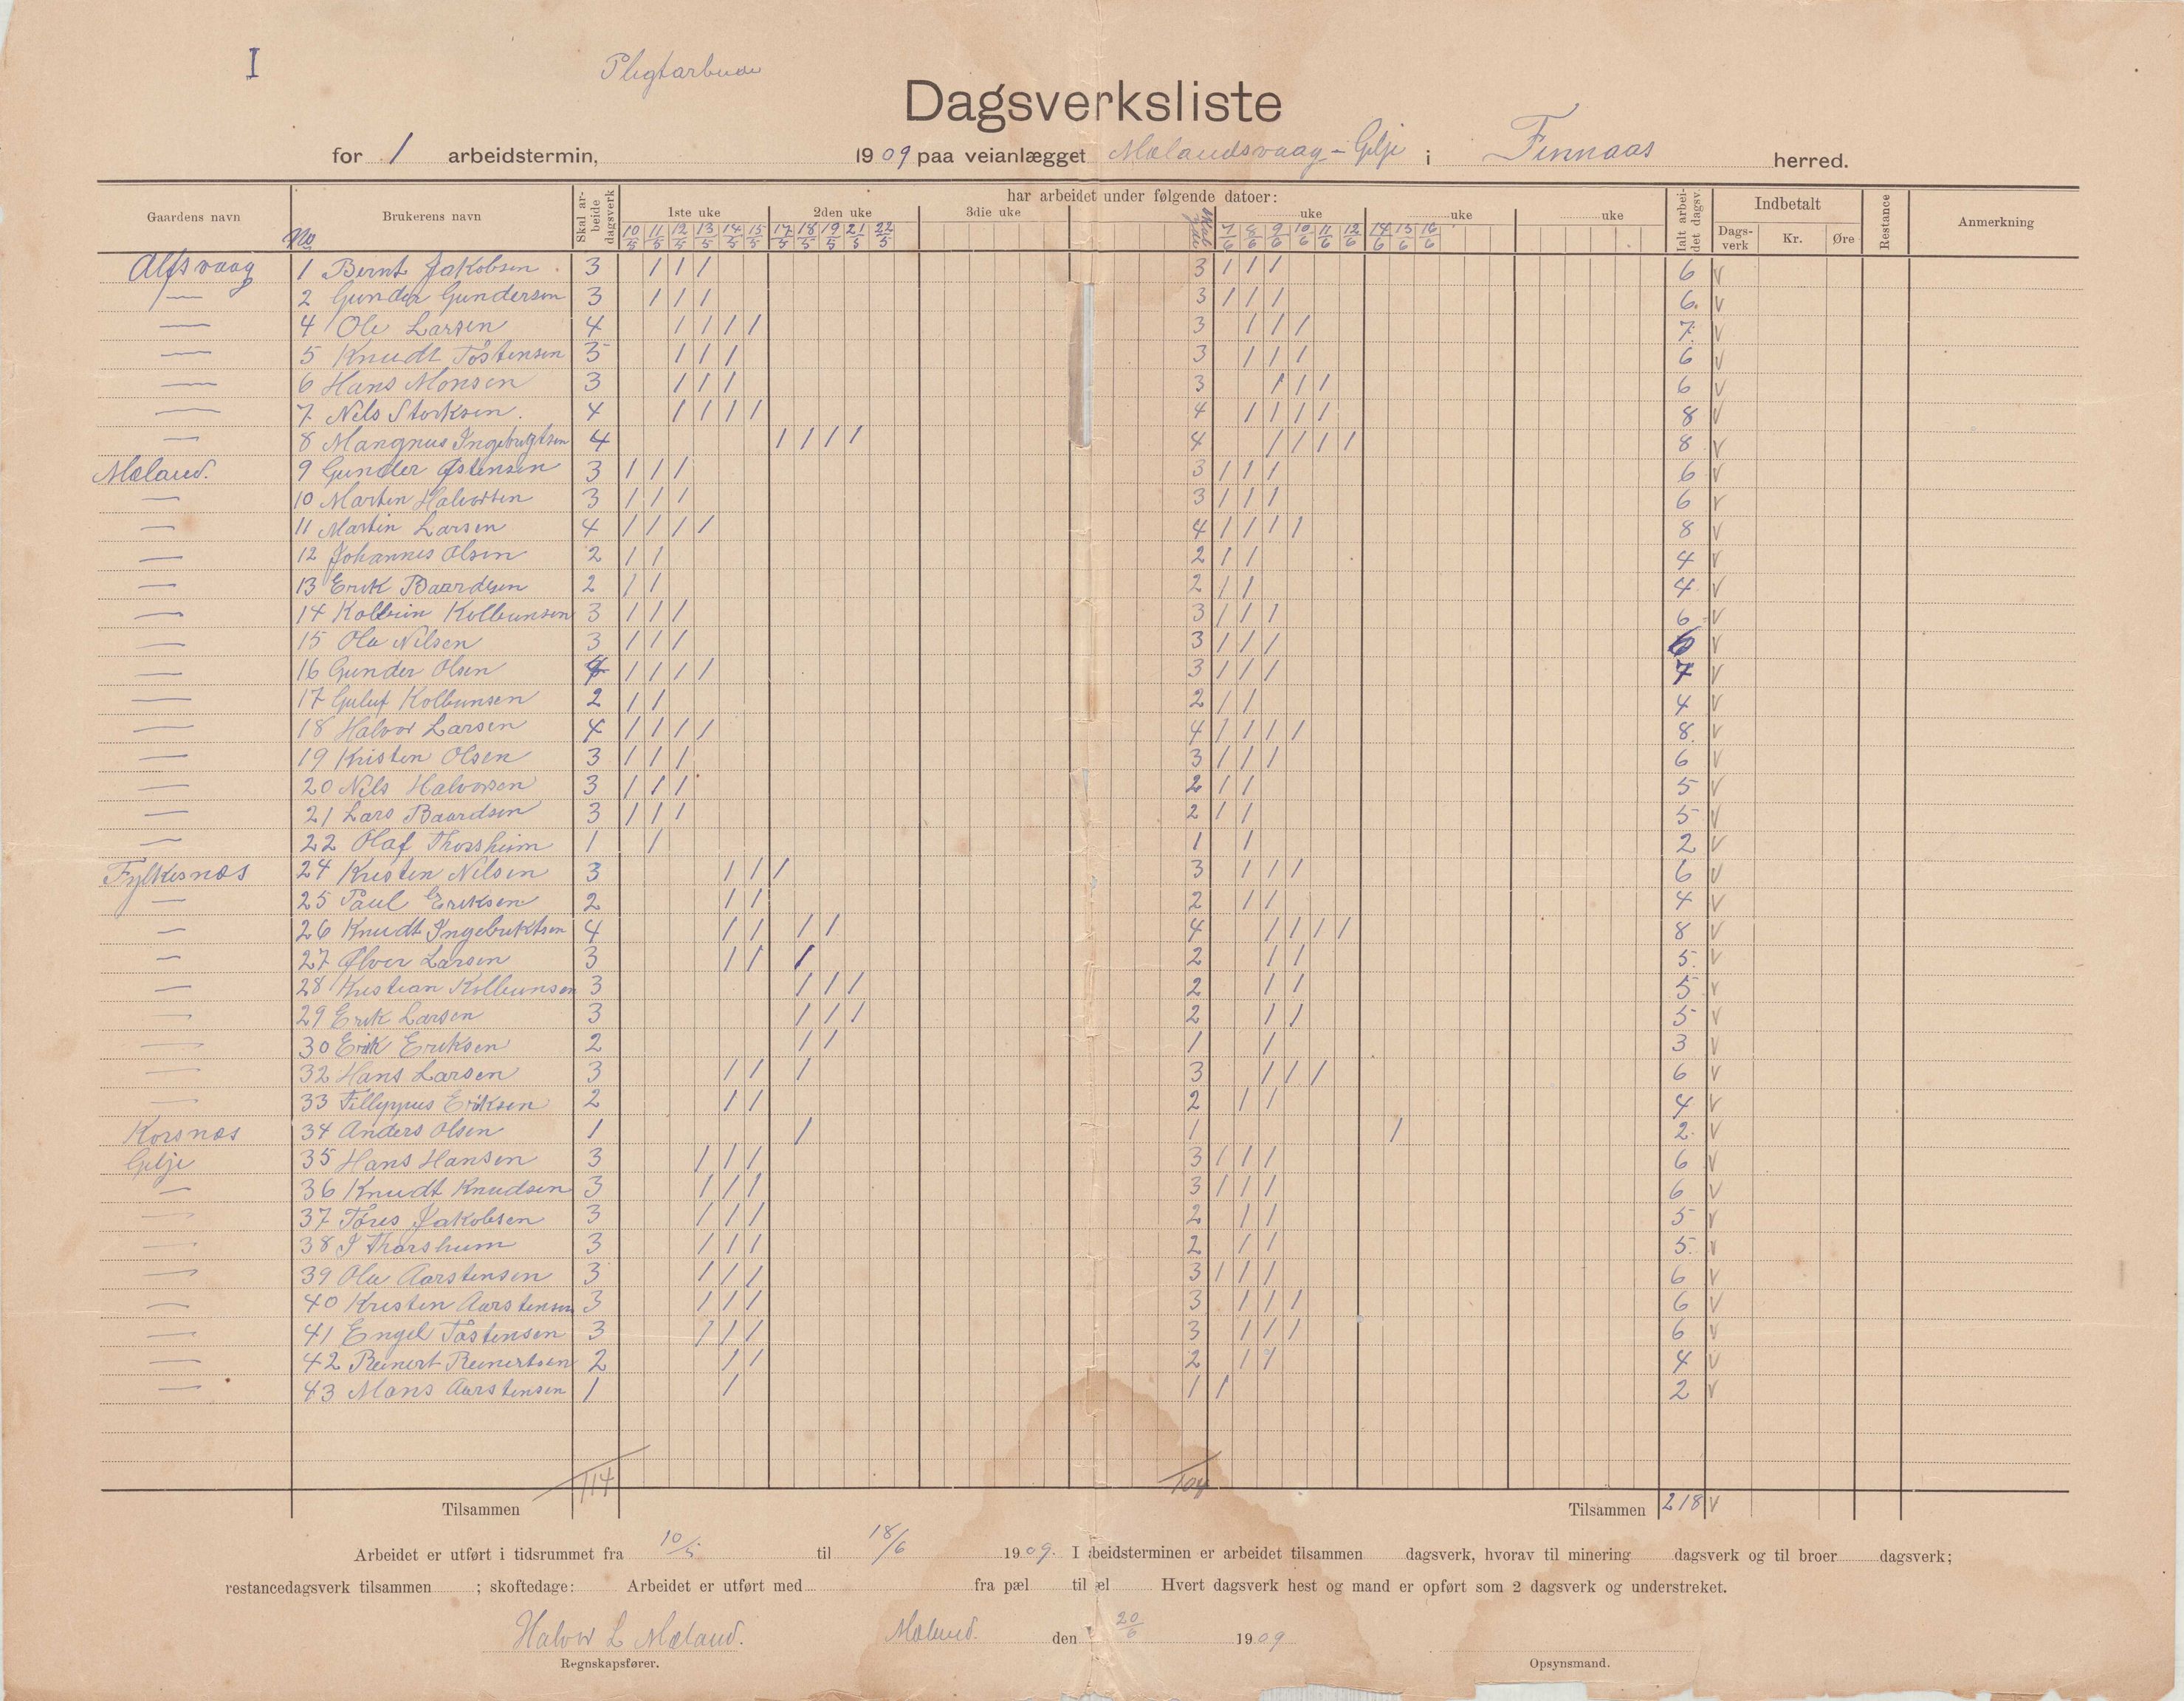 I
Pligtarbeide
Dagsverksliste
for 1 arbeidstermin, 1909 paa veianlægget Mælandsvaag - Gilje i Finnaas herred.
Gaardens navn No Brukerens navn Skal arbeide dagsverk har arbeidet under følgende datoer: Ialt arbeidet dagsv. Indbetalt Restance Anmerkning
1ste uke 2den uke 3die uke uke uke uke Dagsverk Kr. Øre
10/5 11/5 12/5 13/5 14/5 15/5 17/5 18/5 19/5 21/5 22/5 7/6 8/6 9/6 10/6 11/6 12/6 14/6 15/6 16/6
Alfsvaag 1 Bernt Jakobsen 3 / / / 3 / / / 6 V
— 2 Gunder Gundersen 3 / / / 3 / / / 6. V
— 4 Ole Larsen 4 / / / / 3 / / / 7. V
— 5 Knudt Tostensen 3 / / / 3 / / / 6 V
— 6 Hans Monsen 3 / / / 3 / / / 6 V
— 7 Nils Storksen. 4 / / / / 4 / / / / 8 V
— 8 Mangnus Ingebrigtsen 4 / / / / 4 / / / / 8 V
Mæland. 9 Gunder Østensen 3 / / / 3 / / / 6 V
— 10 Marten Halvorsen 3 / / / 3 / / / 6 V
— 11 Martin Larsen 4 / / / / 4 / / / / 8 V
— 12 Johannes Olsen 2 / / 2 / / 4 V
— 13 Erik Baardsen 2 / / 2 / / 4 V
— 14 Kolbein Kolbeinsen 3 / / / 3 / / / 6 V
— 15 Ole Nilsen 3 / / / 3 / / / 6 V
— 16 Gunder Olsen 4 / / / / 3 / / / 7 V
— 17 Guluf Kolbeinsen 2 / / 2 / / 4 V
— 18 Halvor Larsen 4 / / / / 4 / / / / 8. V
— 19 Kristen Olsen 3 / / / 3 / / / 6 V
— 20 Nils Halvorsen 3 / / / 2 / / 5 V
— 21 Lars Baardsen 3 / / / 2 / / 5 V
— 22 Olaf Thorsheim 1 / 1 / 2 V
Fylkesnæs 24 Kristen Nilsen 3 / / / 3 / / / 6 V
— 25 Paul Eriksen 2 / / 2 / / 4 V
— 26 Knudt Ingebriktsen 4 / / / / 4 / / / / 8 V
— 27 Ølver Larsen 3 / / / 2 / / 5. V
— 28 Kristian Kolbeinsen 3 / / / 2 / / 5 V
— 29 Erik Larsen 3 / / / 2 / / 5 V
— 30 Erik Eriksen 2 / / 1 / 3 V
— 32 Hans Larsen 3 / / / 3 / / / 6 V
— 33 Fillyppus Eriksen 2 / / 2 / / 4 V
Korsnæs 34 Anders Olsen 1 / 1 / 2. V
Gilje 35 Hans Hansen 3 / / / 3 / / / 6 V
— 36 Knudt Knudsen 3 / / / 3 / / / 6 V
— 37 Tøres Jakobsen 3 / / / 2 / / 5 V
— 38 I Thorsheim 3 / / / 2 / / 5. V
— 39 Ole Aarstensen 3 / / / 3 / / / 6 V
— 40 Kristen Aarstensen 3 / / / 3 / / / 6 V
— 41 Engel Tostensen 3 / / / 3 / / / 6 V
— 42 Reinert Reinertsen 2 / / 2 / / 4 V
— 43 Mons Aarstensen 1 / 1 / 2 V
114 104
Tilsammen Tilsammen 218 V
Arbeidet er utført i tidsrummet fra 10/5 til 18/6 1909. I beidsterminen er arbeidet tilsammen dagsverk, hvorav til minering dagsverk og til broer dagsverk;
restancedagsverk tilsammen ; skoftedage: Arbeidet er utført med fra pæl til æl Hvert dagsverk hest og mand er opført som 2 dagsverk og understreket.
Halvor L Mæland. Mæland. den 20/6 1909
Regnskapsfører. Opsynsmand.